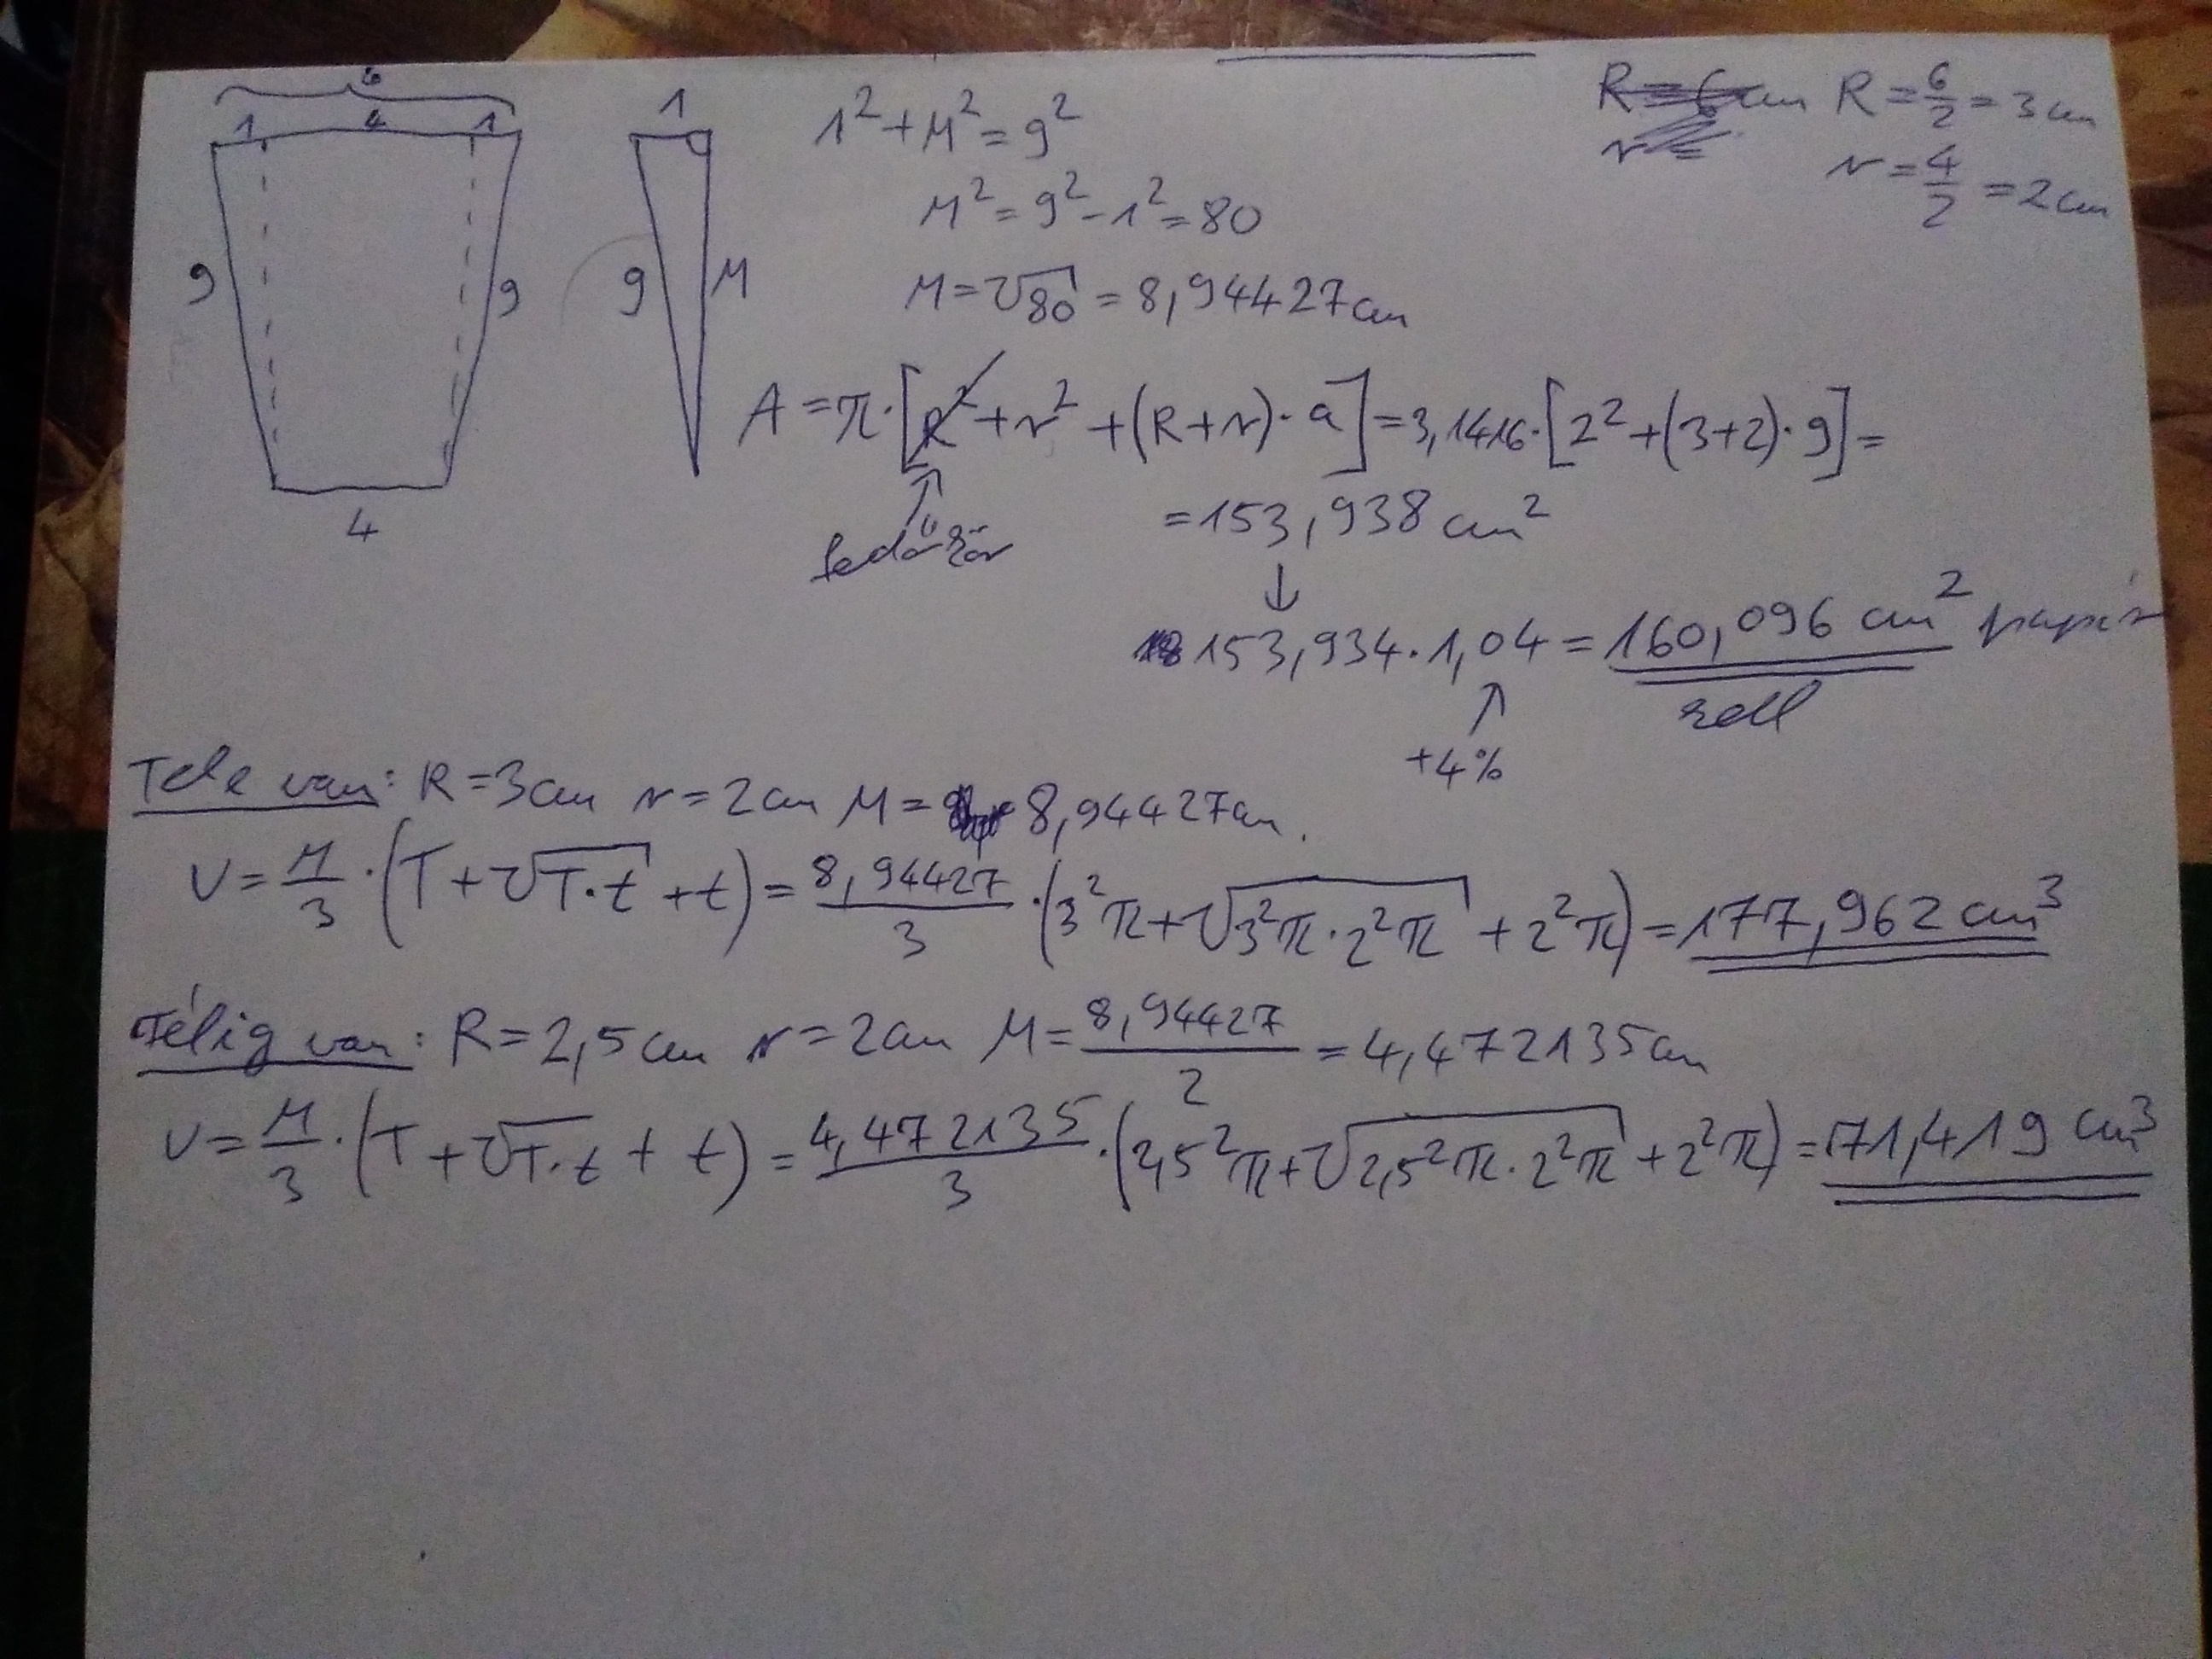 6
1 4 1
9 9
4
1
9 M
1² + M² = 9²
M² = 9² - 1² = 80
M = √80 = 8,94427 cm
R = 6 cm R = 6/2 = 3 cm
r = r = 4/2 = 2 cm
A = π · [R² + r² + (R + r) · a] = 3,1416 · [2² + (3+2) · 9] =
fedőkör
= 153,938 cm²
↓
153,934 · 1,04 = 160,096 cm² papír
kell
+4%
Tele van: R = 3 cm r = 2 cm M = 8,94427 cm.
V = M/3 · (T + √T·t + t) = 8,94427/3 · (3²π + √3²π · 2²π + 2²π) = 177,962 cm³
Félig van: R = 2,5 cm r = 2 cm M = 8,94427/2 = 4,472135 cm
V = M/3 · (T + √T·t + t) = 4,472135/3 · (2,5²π + √2,5²π · 2²π + 2²π) = 71,419 cm³